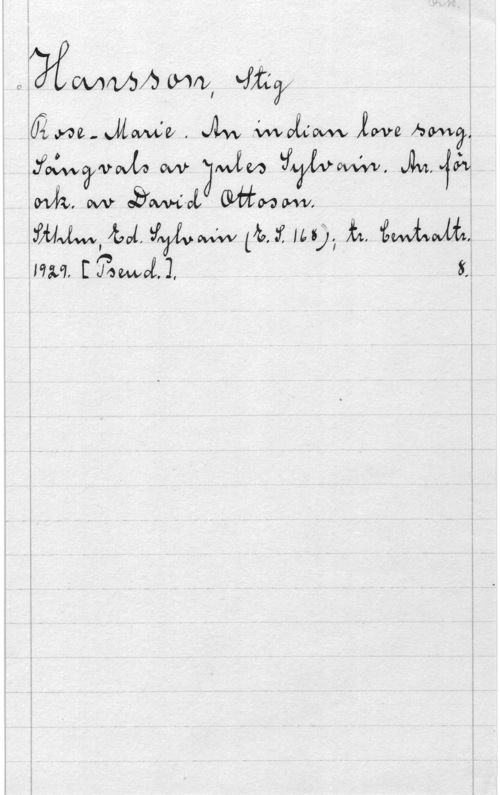 Hansson, Stig
Rose-Marie. An indian love song.
Sångvals av Jules Sylvain. Arr. för
ork. av David Ottoson.
Sthlm, Ed. Sylvain (E. S. 168); tr. Centraltr.
1929. [Pseud.]. 8.